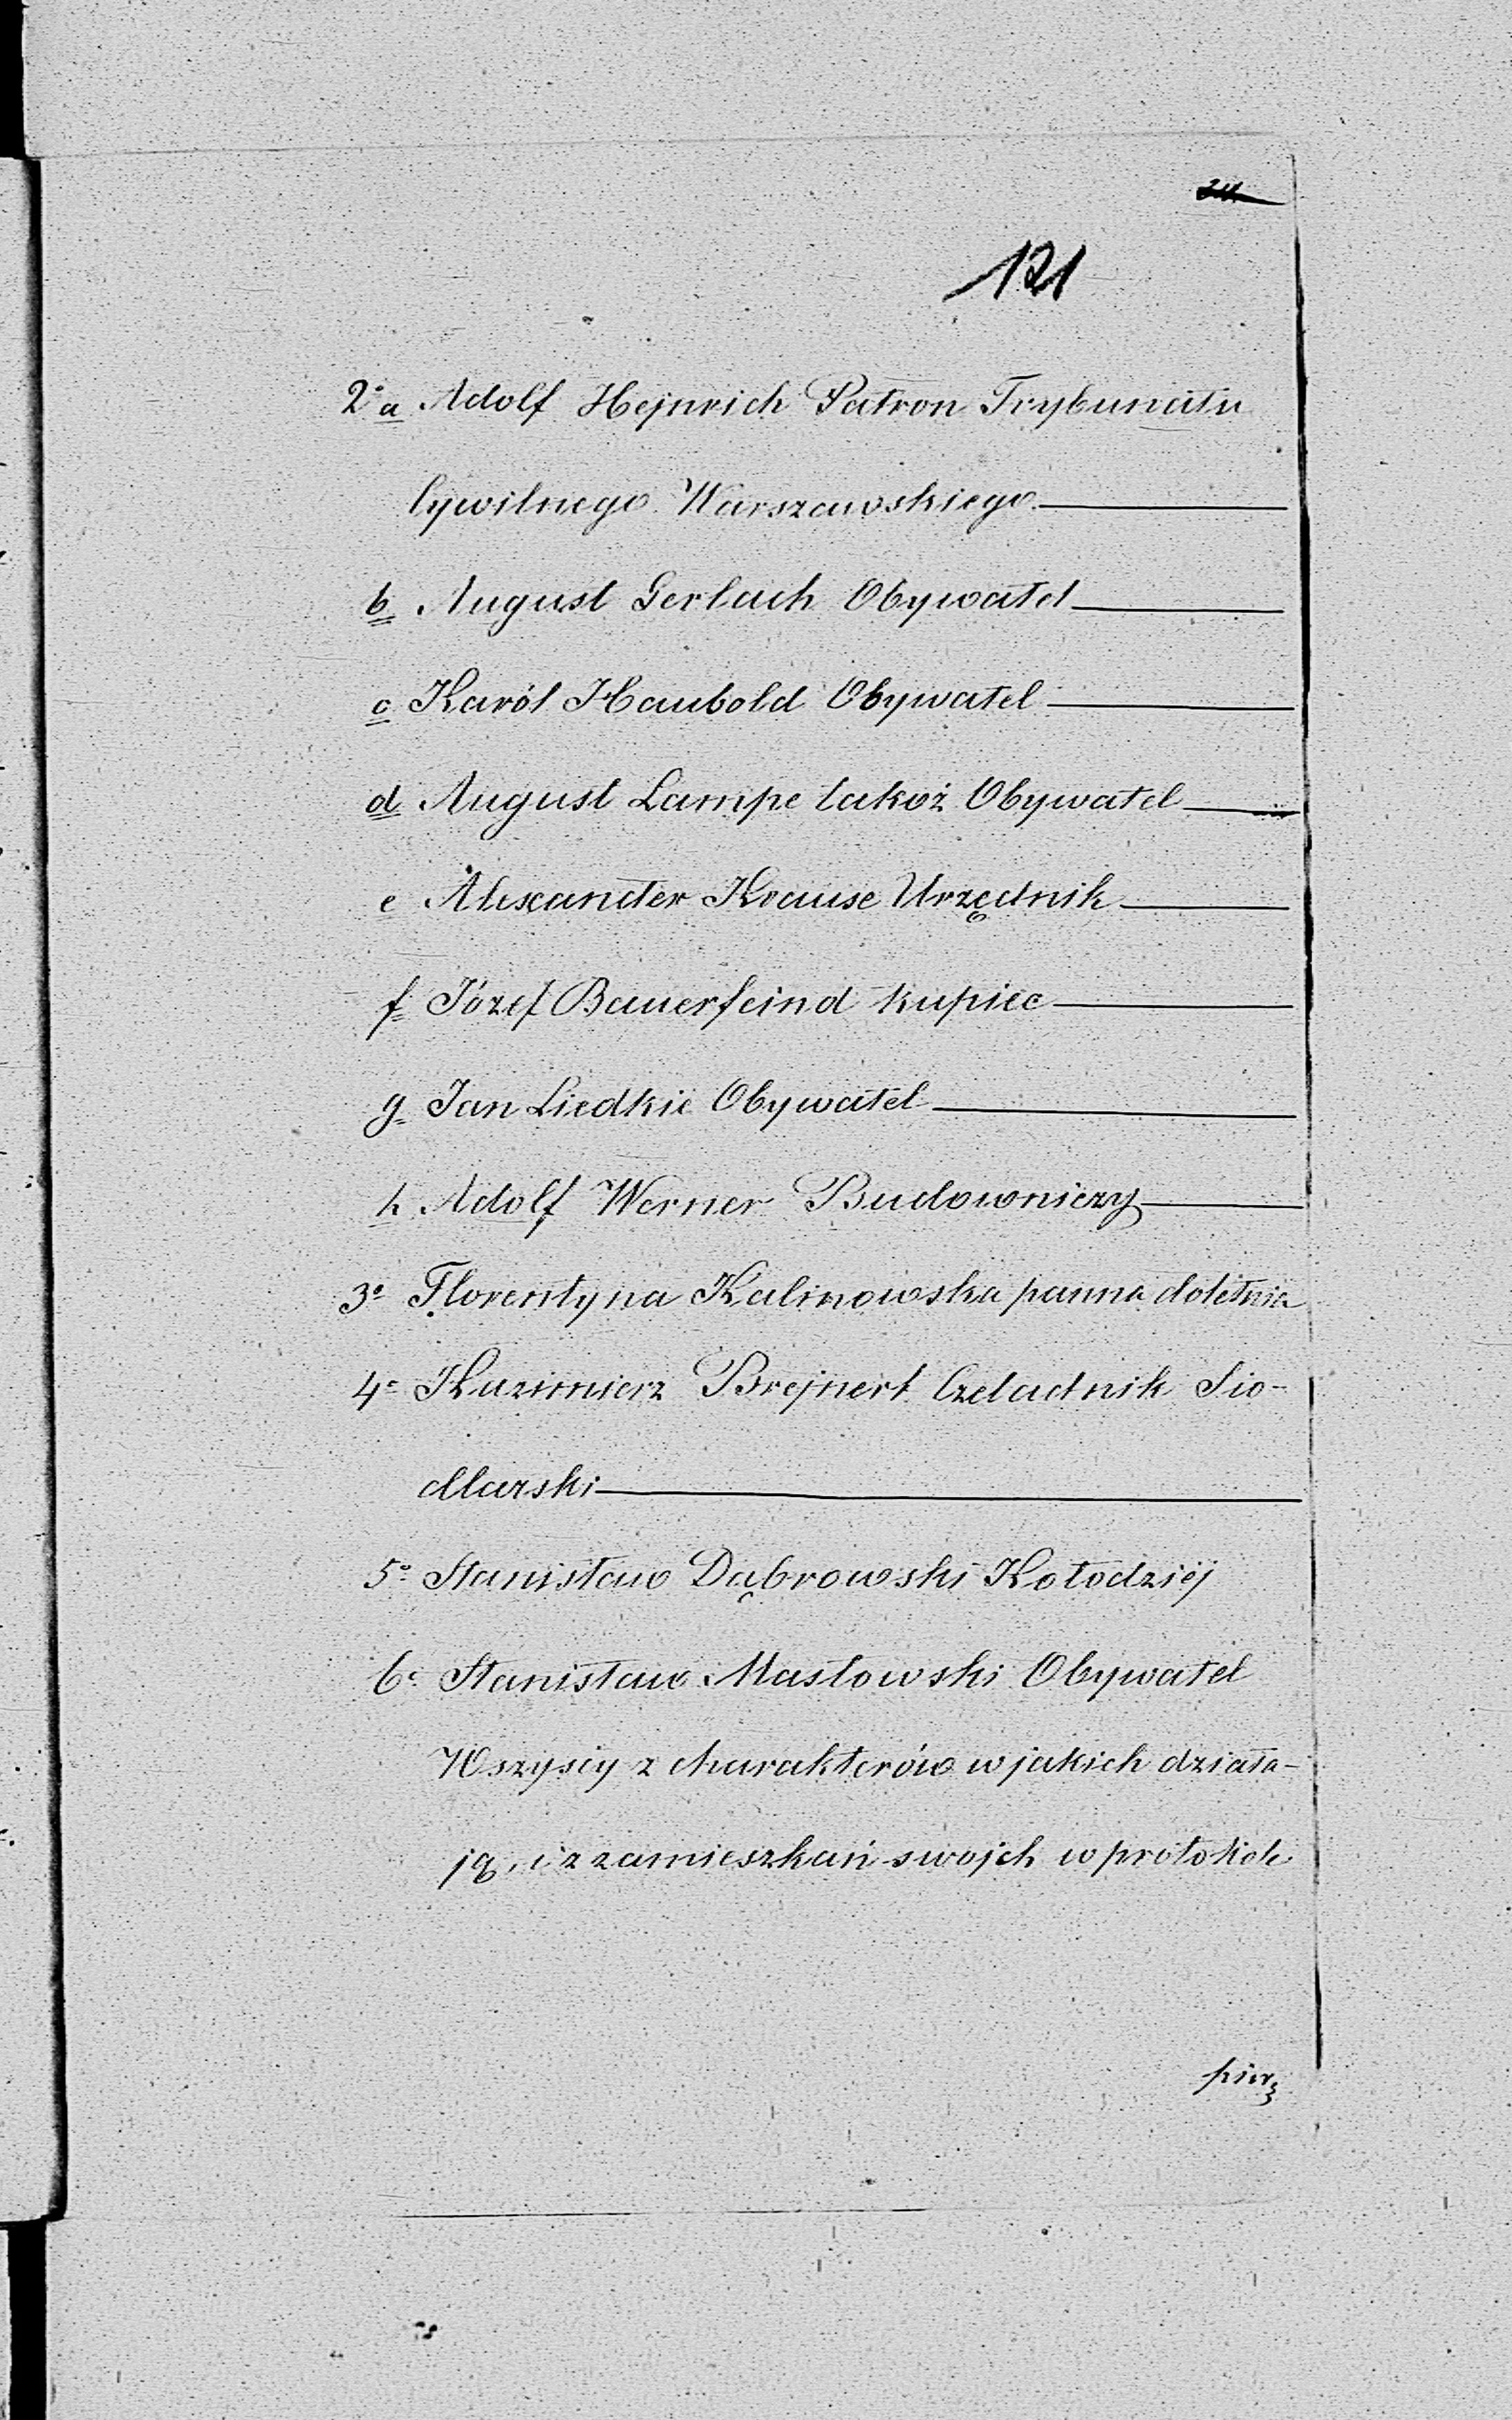 121
2° a Adolf Hejnrich Patron Trybunału
Cywilnego Warszawskiego
b August Gerlach Obywatel
c Karól Haubold Obywatel
d August Lampe takoż Obywatel
e Alexander Krause Urzędnik
f Józef Bauerfeind kupiec
g Jan Liedkie Obywatel
h Adolf Werner Budowniczy
3° Florentyna Kalinowska panna doletnia
4° Kazimierz Brejnert Czeladnik Sio-
dlarski
5° Stanisław Dąbrowski Kołodziéj
6° Stanisław Masłowski Obywatel
Wszyscy z charakterów w jakich działa-
ją, i z zamieszkań swojch w protokóle
pier